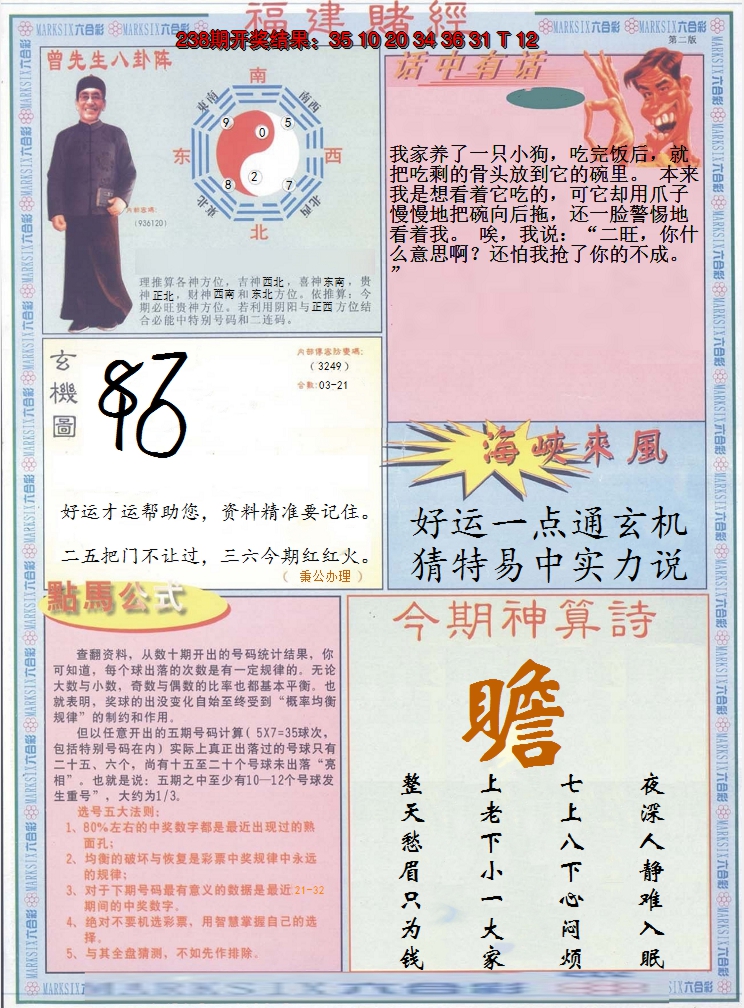 福建賭經
238期开奖结果：35 10 20 34 36 31 T 12
第二版
MARKSIX六合彩
曾先生八卦阵
南
東南
南西
9
0
5
东
西
8
2
7
東北
北西
北
内部密碼:
(936120)
理推算各神方位，吉神西北，喜神东南，贵
神正北，财神西南和东北方位。依推算：今
期必旺贵神方位。若利用阴阳与正西方位结
合必能中特别号码和二连码。
话中有话
我家养了一只小狗，吃完饭后，就
把吃剩的骨头放到它的碗里。 本来
我是想看着它吃的，可它却用爪子
慢慢地把碗向后拖，还一脸警惕地
看着我。 唉，我说：“二旺，你什
么意思啊？还怕我抢了你的不成。
”
玄機圖
内部傳密防變碼:
(3249)
合數:03-21
好运才运帮助您，资料精准要记住。
二五把门不让过，三六今期红红火。
（ 秉公办理 ）
海峽來風
好运一点通玄机
猜特易中实力说
點馬公式
查翻资料，从数十期开出的号码统计结果，你
可知道，每个球出落的次数是有一定规律的。无论
大数与小数，奇数与偶数的比率也都基本平衡。也
就表明，奖球的出没变化自始至终受到“概率均衡
规律”的制约和作用。
但以任意开出的五期号码计算( 5X7=35球次，
包括特别号码在内）实际上真正出落过的号球只有
二十五、六个，尚有十五至二十个号球未出落“亮
相”。也就是说：五期之中至少有10—12个号球发
生重号”，大约为1/3。
选号五大法则：
1、80%左右的中奖数字都是最近出现过的熟
面孔；
2、均衡的破坏与恢复是彩票中奖规律中永远
的规律；
3、对于下期号码最有意义的数据是最近21-32
期间的中奖数字。
4、绝对不要机选彩票，用智慧掌握自己的选
择。
5、与其全盘猜测，不如先作排除。
今期神算詩
瞻
夜深人静难入眠
七上八下心闷烦
上老下小一大家
整天愁眉只为钱